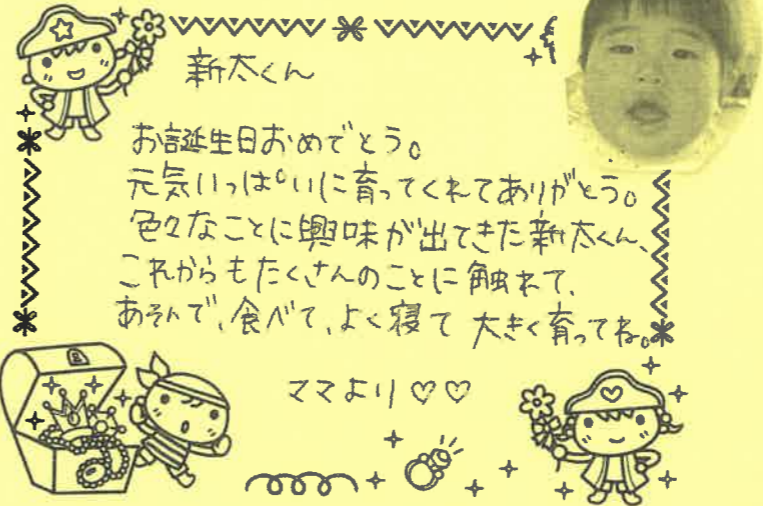 新太くん
お誕生日おめでとう。
元気いっぱいに育ってくれてありがとう。
色々なことに興味が出てきた新太くん、
これからもたくさんのことに触れて、
あそんで、食べて、よく寝て 大きく育ってね。
ママより♡♡